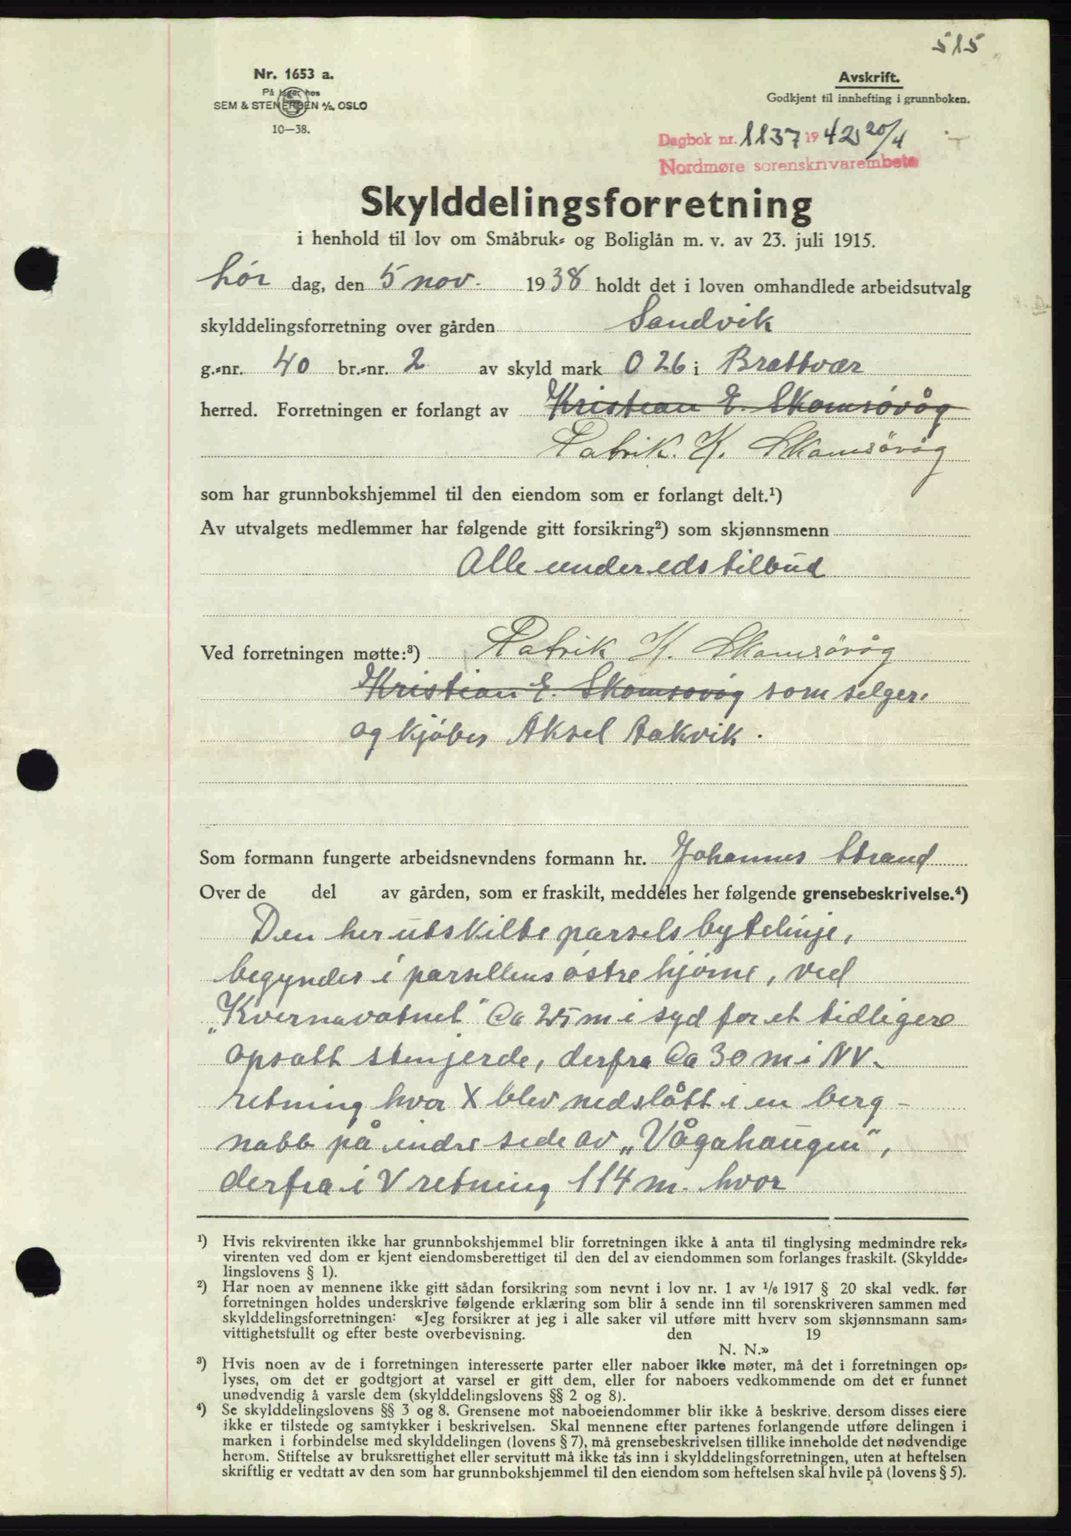 515
Nr. 1653 a.
På lager hos
SEM & STENERSEN A/S, OSLO
10—38.
Avskrift.
Godkjent til innhefting i grunnboken.
Dagbok nr. 1137 1942 20/4
Nordmøre sorenskrivarembete
Skylddelingsforretning
i henhold til lov om Småbruk- og Boliglån m. v. av 23. juli 1915.
Lør dag, den 5 nov. 1938 holdt det i loven omhandlede arbeidsutvalg
skylddelingsforretning over gården Sandvik
g.-nr. 40 br.-nr. 2 av skyld mark 0 26 i Brattvær
herred. Forretningen er forlangt av Kristian E. Skomsövåg
Patrik. K. Skomsövåg
som har grunnbokshjemmel til den eiendom som er forlangt delt.¹)
Av utvalgets medlemmer har følgende gitt forsikring²) som skjønnsmenn
Alle under edstilbud
Ved forretningen møtte:³) Patrik K. Skomsövåg
Kristian E. Skomsovåg som selger.
og kjöber Aksel Aakvik.
Som formann fungerte arbeidsnevndens formann hr. Johannes Strand
Over de del av gården, som er fraskilt, meddeles her følgende grensebeskrivelse.⁴)
Den her utskilte parsels bytelinje,
begynder i parsellens östre hjörne, ved
„Kvernavatnet" Ca 25 m i syd for et tidligere
opsatt stenjerde, derfra Ca 30 m i NV-
retning hvor X blev nedslått i en berg-
nabb på indre side av „Vågahaugen",
derfra i V retning 114 m. hvor
¹) Hvis rekvirenten ikke har grunnbokshjemmel blir forretningen ikke å anta til tinglysing medmindre rek-
virenten ved dom er kjent eiendomsberettiget til den del av eiendommen som forlanges fraskilt. (Skyldde-
lingslovens § 1).
²) Har noen av mennene ikke gitt sådan forsikring som nevnt i lov nr. 1 av 1/6 1917 § 20 skal vedk. før
forretningen holdes underskrive følgende erklæring som blir å sende inn til sorenskriveren sammen med
skylddelingsforretningen: «Jeg forsikrer at jeg i alle saker vil utføre mitt hverv som skjønnsmann sam-
vittighetsfullt og efter beste overbevisning. den 19
N. N.»
³) Hvis noen av de i forretningen interesserte parter eller naboer ikke møter, må det i forretningen op-
lyses, om det er godtgjort at varsel er gitt dem, eller for naboers vedkommende om det er funnet
unødvendig å varsle dem (skylddelingslovens §§ 2 og 8).
⁴) Se skylddelingslovens §§ 3 og 8. Grensene mot naboeiendommer blir ikke å beskrive, dersom disses eiere
ikke er tilstede og samtykker i beskrivelsen. Skal mennene efter partenes forlangende utføre delingen i
marken i forbindelse med skylddelingen (lovens § 7), må grensebeskrivelsen tillike inneholde det nødvendige
herom. Stiftelse av bruksrettighet eller servitutt må ikke tas inn i skylddelingsforretningen, uten at heftelsen
skriftlig er vedtatt av den som har grunnbokshjemmel til den eiendom som heftelsen skal hvile på (lovens § 5).